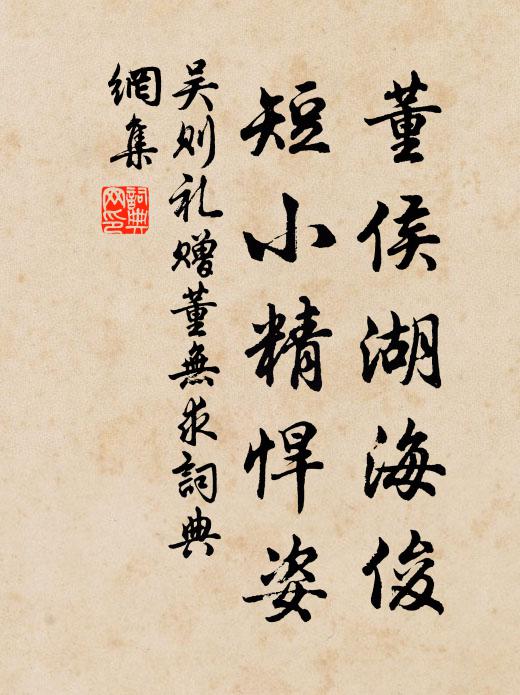 董侯湖海俊
短小精悍姿
吴则礼赠董無求詞典
網集
詞典網印